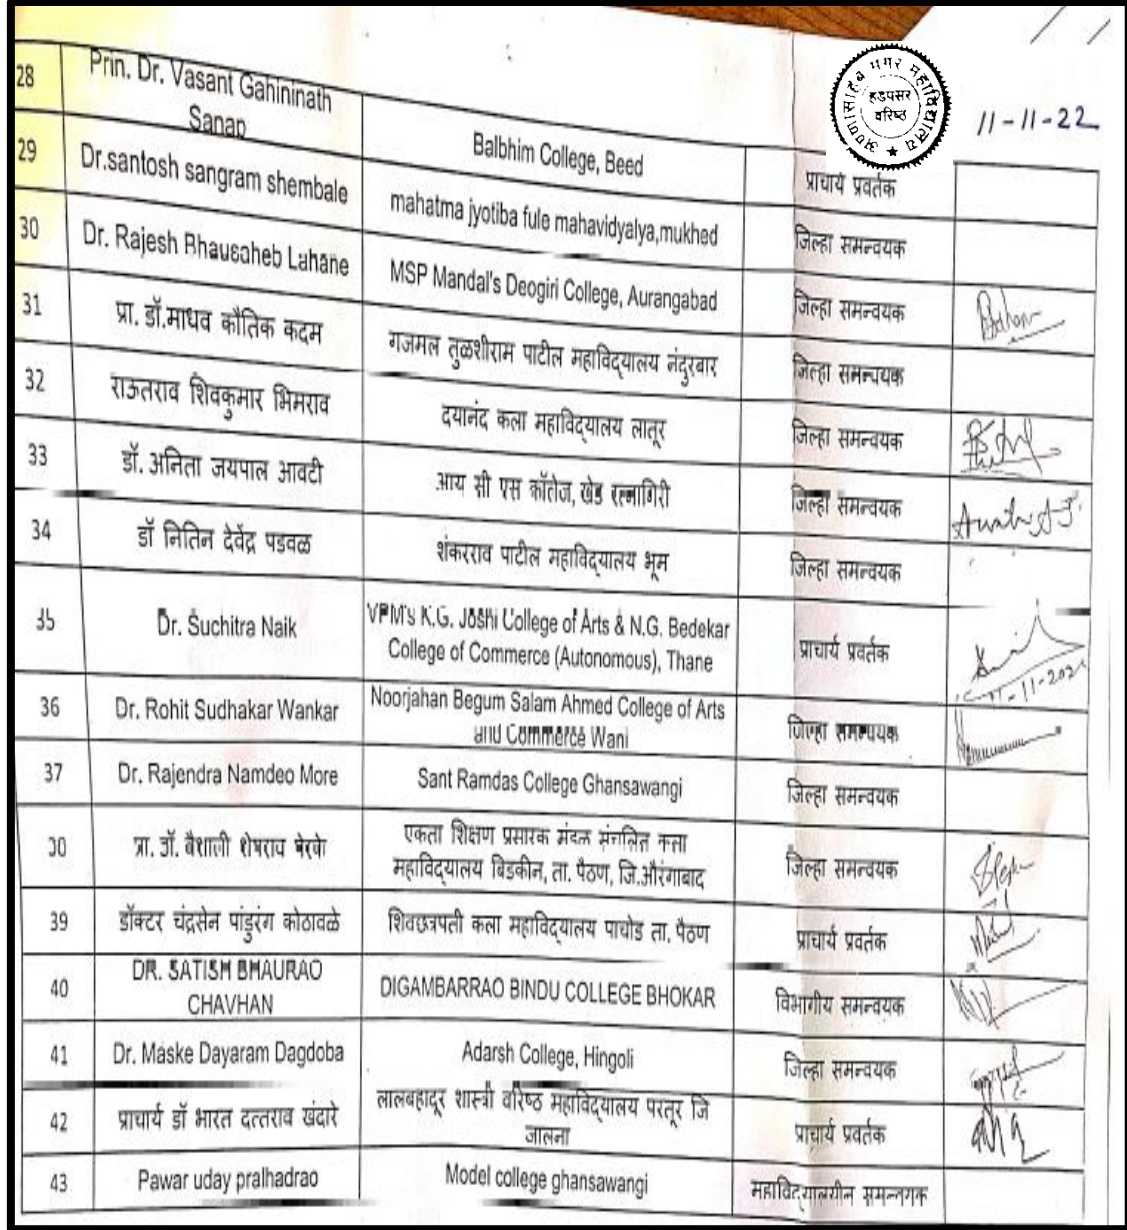 अण्णासाहेब मगर महाविद्यालय
हडपसर
वरिष्ठ
11-11-22
28 Prin. Dr. Vasant Gahininath Sanap Balbhim College, Beed प्राचार्य प्रवर्तक
29 Dr.santosh sangram shembale mahatma jyotiba fule mahavidyalya,mukhed जिल्हा समन्वयक
30 Dr. Rajesh Bhausaheb Lahane MSP Mandal's Deogiri College, Aurangabad जिल्हा समन्वयक
31 प्रा. डॉ.माधव कौतिक कदम गजमल तुळशीराम पाटील महाविद्यालय नंदुरबार जिल्हा समन्वयक
32 राऊतराव शिवकुमार भिमराव दयानंद कला महाविद्यालय लातूर जिल्हा समन्वयक
33 डॉ. अनिता जयपाल आवटी आय सी एस कॉलेज, खेड रत्नागिरी जिल्हा समन्वयक
34 डॉ नितिन देवेंद्र पडवळ शंकरराव पाटील महाविद्यालय भूम जिल्हा समन्वयक
35 Dr. Suchitra Naik VPM's K.G. Joshi College of Arts & N.G. Bedekar
College of Commerce (Autonomous), Thane प्राचार्य प्रवर्तक
36 Dr. Rohit Sudhakar Wankar Noorjahan Begum Salam Ahmed College of Arts
and Commerce Wani जिल्हा समन्वयक
37 Dr. Rajendra Namdeo More Sant Ramdas College Ghansawangi जिल्हा समन्वयक
प्रा. डॉ. वैशाली शेषराव एकता शिक्षण प्रसारक मंडळ संचलित कला
महाविद्यालय बिडकीन, ता. पैठण, जि.औरंगाबाद जिल्हा समन्वयक
39 डॉक्टर चंद्रसेन पांडुरंग कोठावळे शिवछत्रपती कला महाविद्यालय पाचोड ता. पैठण प्राचार्य प्रवर्तक
40 DR. SATISH BHAURAO
CHAVHAN DIGAMBARRAO BINDU COLLEGE BHOKAR विभागीय समन्वयक
41 Dr. Maske Dayaram Dagdoba Adarsh College, Hingoli जिल्हा समन्वयक
42 प्राचार्य डॉ भारत दत्तराव खंदारे लालबहादूर शास्त्री वरिष्ठ महाविद्यालय परतूर जि
जालना प्राचार्य प्रवर्तक
43 Pawar uday pralhadrao Model college ghansawangi महाविद्यालयीन समन्वयक